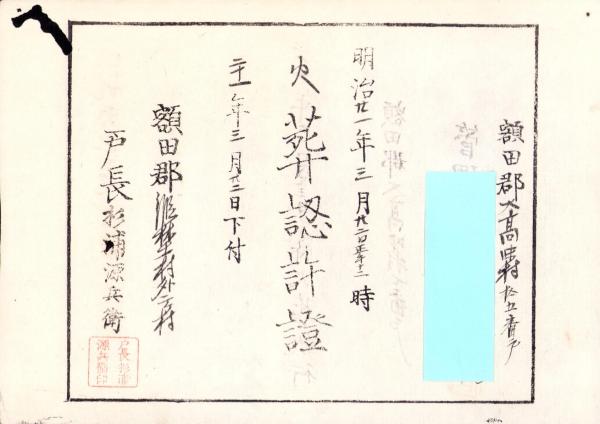 額田郡大高味村拾五番戸
明治廿一年三月廿二日正午十二時
火葬認許證
二十一年三月廿二日下付
額田郡
戸長杉浦源兵衛
戸長杉浦
源兵衛印